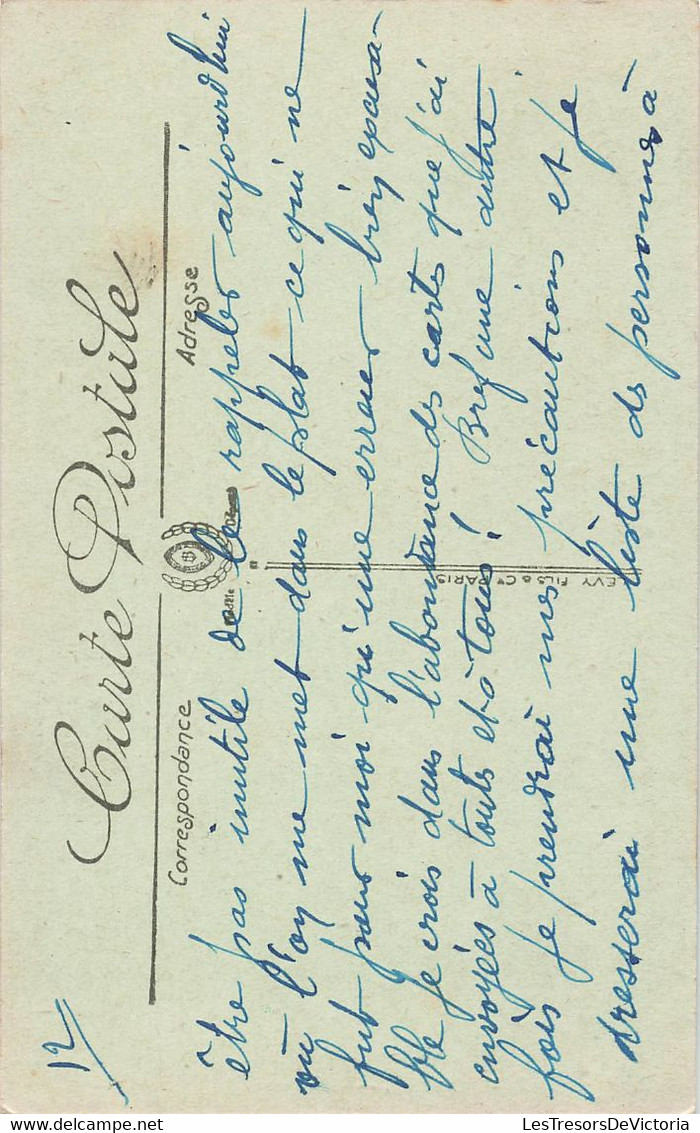 12
Carte Postale
Correspondance
Adresse
LEVY FILS & Cie PARIS
être pas inutile de le rappeler aujourd'hui
où l'on me met dans le plat ce qui ne
fut pour moi qu'une erreur bien excusa-
ble je crois dans l'abondance des cartes que j'ai
envoyées à touts et à tous! Bref une autre
fois je prendrai mes précautions et je
dresserai une liste de personnes à
LesTresorsDeVictoria